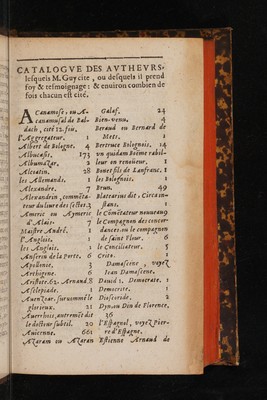 CATALOGVE DES AVTHEVRS,
lesquels M. Guy cite, ou desquels il prend
foy & tesmoignage: & enuiron combien de
fois chacun est cité.
ACanamose, ou A-
canamusal de Bal-
dach, cité 12. fois,
l'Aggregateur, 1
Albert de Bologne, 4
Albucasis, 173
Albumazar, 2
Alcoatin, 28
les Allemands, 1
Alexandre, 7
Alexandrin, commēta-
teur du liure des sectes, 3
Americ ou Aymeric
d'Alais, 7
Maistre André, 1
l'Anglois, 1
les Anglois, 1
Anserin de la Porte, 6
Apollonie, 3
Archigene, 6
Aristote, 62. Arnaud, 8
Asclepiade, 1
Auenzoar, surnommé le
glorieux, 21
Auerrhois, autremēt dit
le desteur subtil, 20
Auicenne, 661
Azaram ou Azaran
Galaf, 24
Bien-venu, 4
Beraud ou Bernard de
Mets, 1
Bertruce Bolognois, 14
vn quidam Boëme rabil-
leur en renoüeur, 1
Bonet fils de Lanfranc, 1
les Bolognois, 1
Brun, 49
Blaccarius dit, Circa in-
stans, 1
le Cōmentateur nouueau
le Compagnon des concor-
dances, ou le compagnon
de saint Flour, 6
le Conciliateur, 5
Criton, 1
Damascene, voyez
Iean Damascene,
Dauid 1. Democrate, 1
Democrite, 1
Dioscoride, 2
Dyn ou Din de Florence,
26
l'Espagnol, voyez Pier-
re d'Espagne,
Estienne Arnaud de